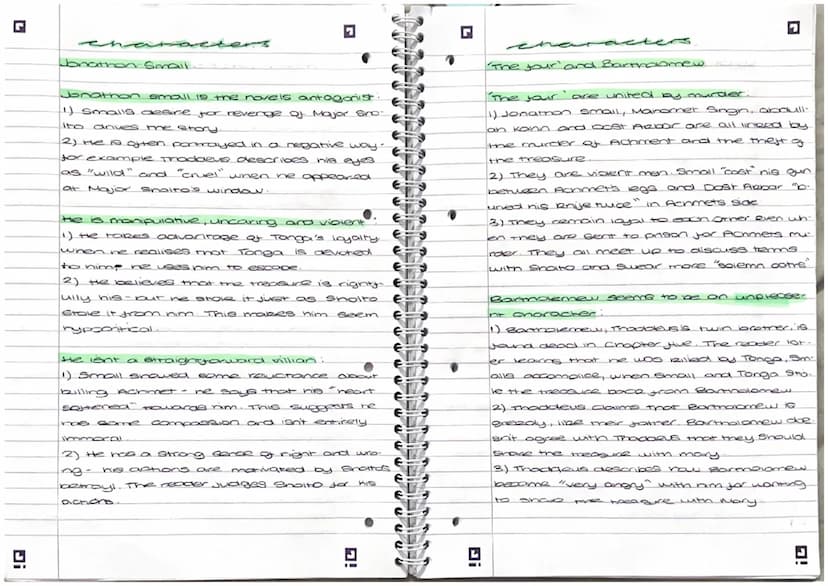 characters
Jonathon Small
Jonathon small is the novels antagonist:
1) Smalls desire for revenge of Major Sho-
lto drives the story.
2) He is often portrayed in a negative way-
for example Thaddeus describes his eyes
as "wild" and "cruel" when he appeared
at Major Sholto's window.
He is manipulative, uncaring and violent:
1) He takes advantage of Tonga's loyalty
when he realises that Tonga is devoted
to him, he uses him to escape.
2) He believes that the treasure is right-
ully his - but he stole it just as Sholto
stole it from him. This makes him seem
hypocritical.
He isnt a straightforward villian:
1) Small showed some reluctance about
killing Achmet - he says that his "heart
softened" towards him. This suggests he
has some compassion and isnt entirely
immoral.
2) He has a strong sense of right and wro-
ng - his actions are motivated by Sholtos
betrayl. The reader judges Sholto for his
actions.
characters
'The four' and Bartholomew
'The four' are united by murder:
1) Jonathon Small, Mahomet Singh, Abdull-
ah Kahn and Dost Akbar are all linked by
the murder of Achment and the theft of
the treasure.
2) They are violent men. Small "cast" his gun
between Achmets legs and Dost Akbar "b-
uried his knife twice" in Achmets side
3) They remain loyal to each other even wh-
en they are sent to prison for Achmets mu-
rder. They all meet up to discuss terms
with Sholto and swear more "solemn oaths"
Bartholemew seems to be an unpleasa-
nt character:
1) Bartholemew, Thaddeus's twin brother, is
found dead in Chapter five. The reader lat-
er learns that he was killed by Tonga, Sm-
alls accomplice, when Small and Tonga sto-
le the treasure back from Bartholomew
2) Thaddeus claims that Bartholomew is
greedy, like their father. Bartholomew doe
snt agree with Thaddeus that they should
share the treasure with mary
3) Thaddeus describes how Bartholomew
became "very angry" with him for wanting
to share the treasure with Mary.